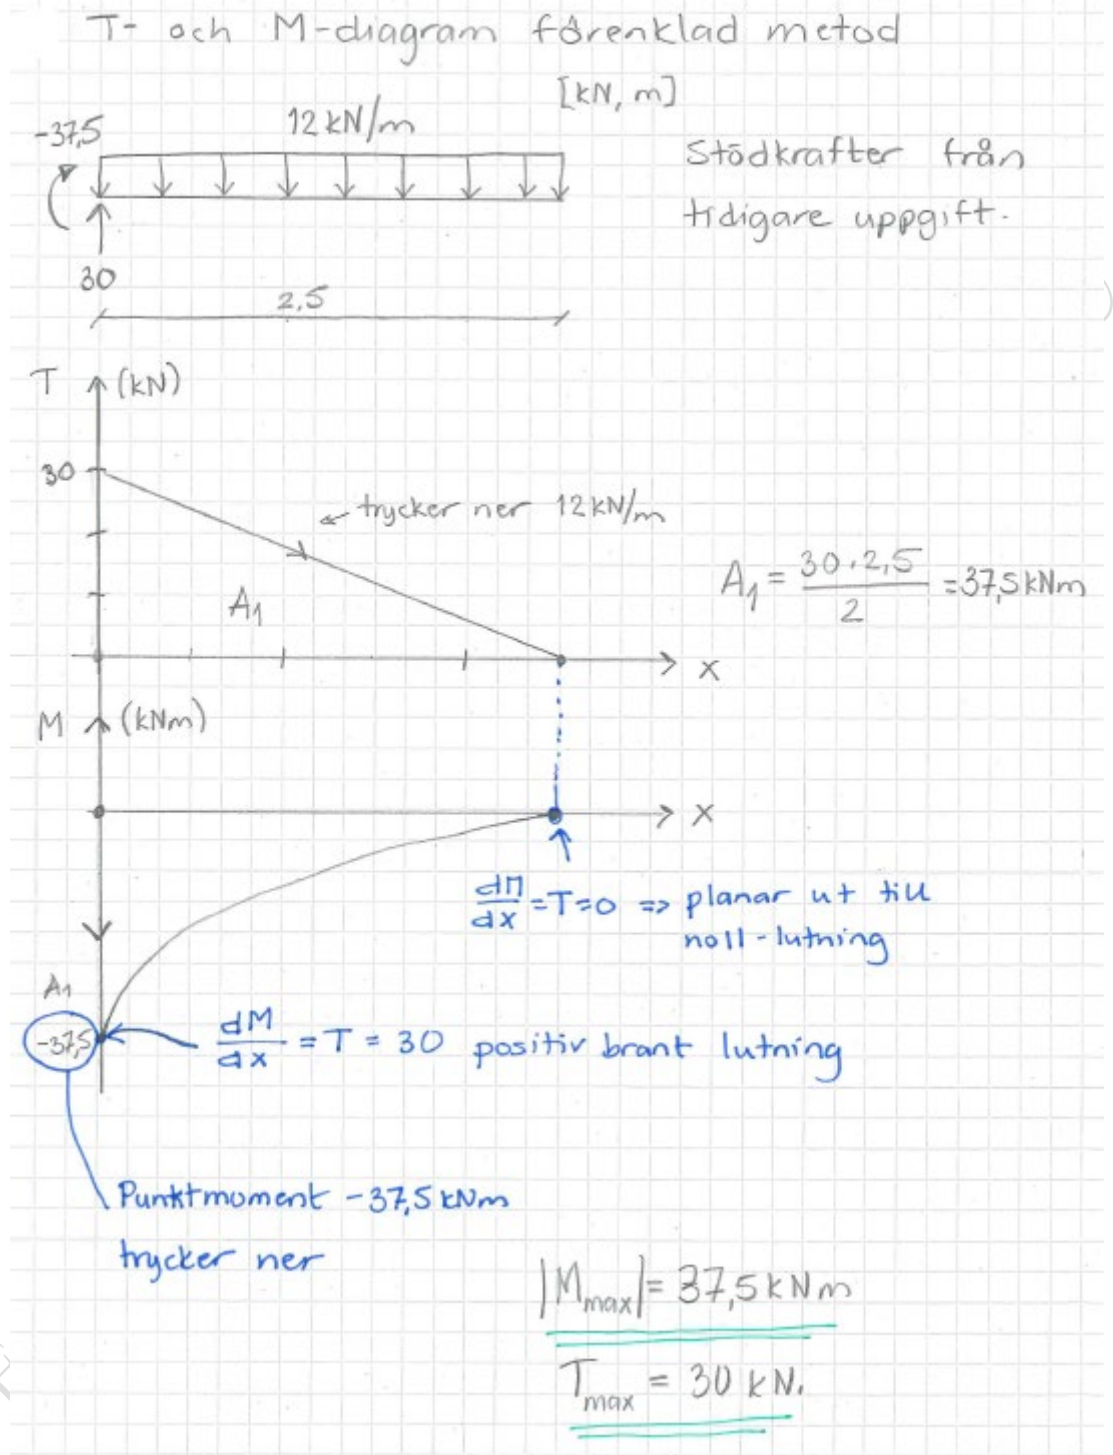 T- och M-diagram förenklad metod
[kN, m]
-37,5
12 kN/m
Stödkrafter från
tidigare uppgift.
30
2,5
T (kN)
30
trycker ner 12kN/m
A₁
A₁ = 30·2,5 / 2 = 37,5 kNm
x
M (kNm)
x
dM/dx = T = 0 => planar ut till
noll-lutning
A₁
-37,5
dM/dx = T = 30 positiv brant lutning
Punktmoment -37,5 kNm
trycker ner
|Mmax| = 37,5 kNm
Tmax = 30 kN.